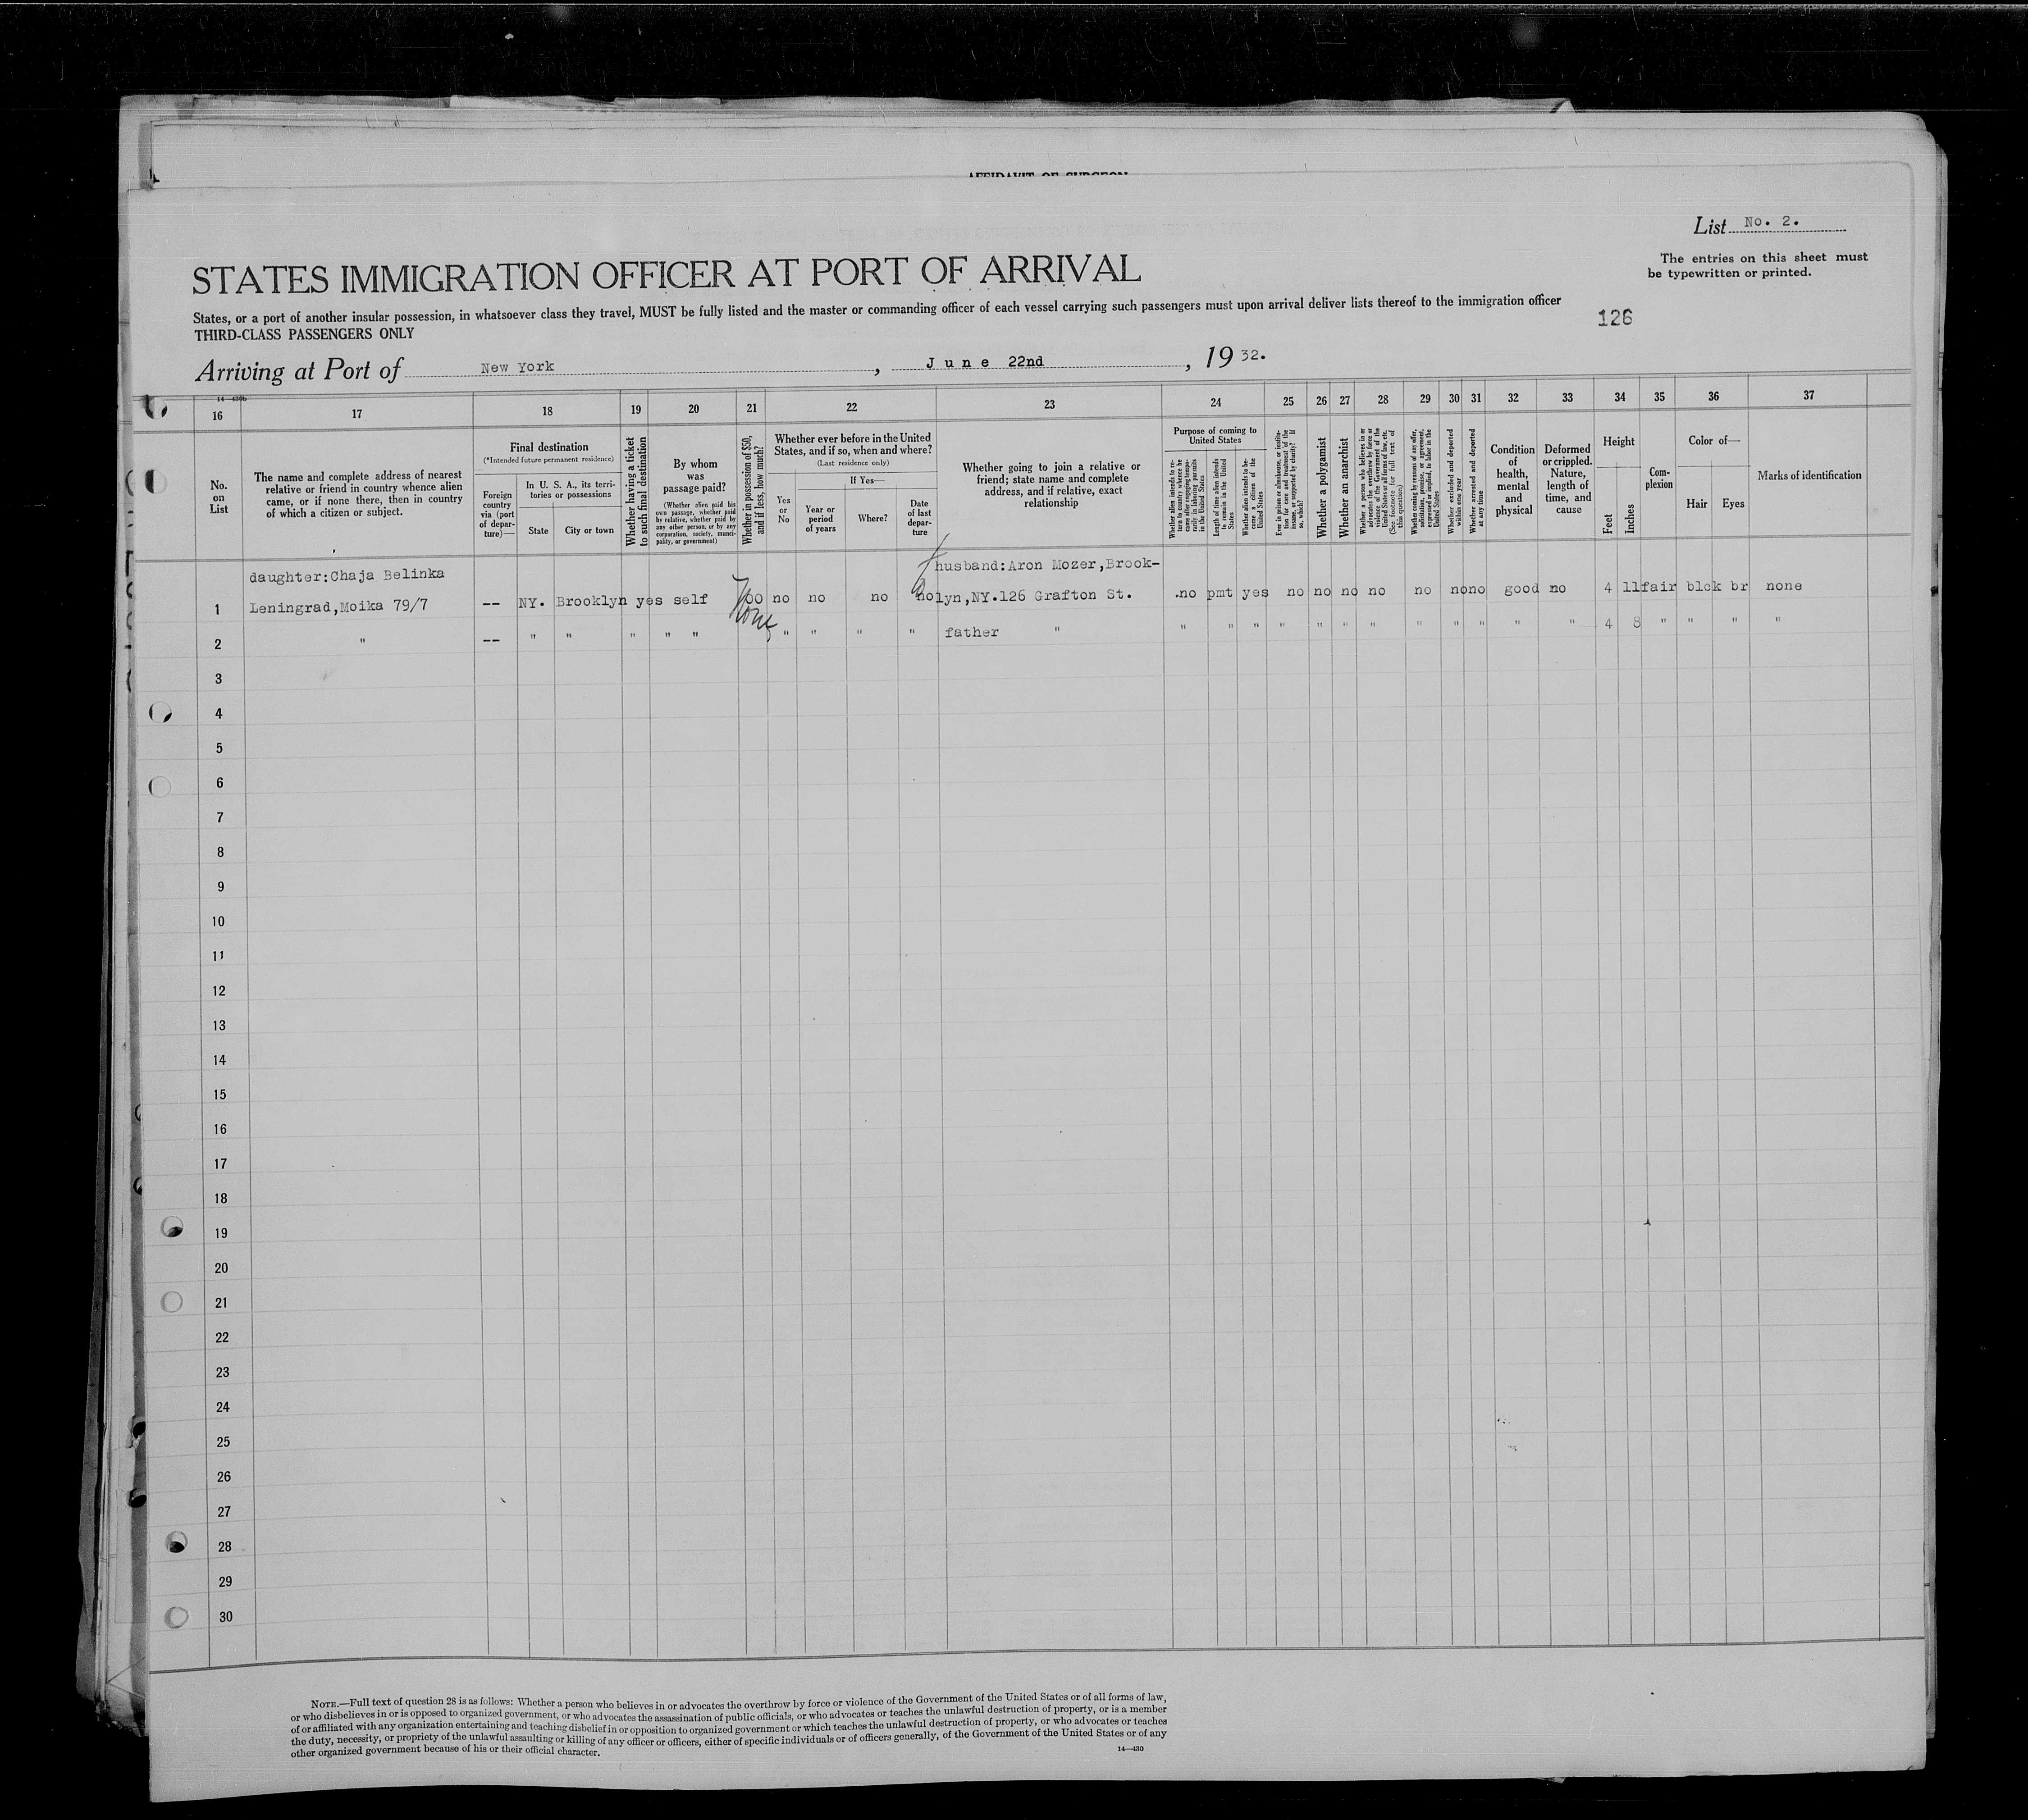 List No. 2.
STATES IMMIGRATION OFFICER AT PORT OF ARRIVAL
The entries on this sheet must
be typewritten or printed.
States, or a port of another insular possession, in whatsoever class they travel, MUST be fully listed and the master or commanding officer of each vessel carrying such passengers must upon arrival deliver lists thereof to the immigration officer
THIRD-CLASS PASSENGERS ONLY
126
Arriving at Port of New York, June 22nd, 1932.
14—430b
16 17 18 19 20 21 22 23 24 25 26 27 28 29 30 31 32 33 34 35 36 37
No.
on
List
The name and complete address of nearest
relative or friend in country whence alien
came, or if none there, then in country
of which a citizen or subject.
Final destination
(*Intended future permanent residence)
Foreign
country
via (port
of depar-
ture)—
In U. S. A., its terri-
tories or possessions
State
City or town
Whether having a ticket
to such final destination
By whom
was
passage paid?
(Whether alien paid his
own passage, whether paid
by relative, whether paid by
any other person, or by any
corporation, society, munici-
pality, or government)
Whether in possession of $50,
and if less, how much?
Whether ever before in the United
States, and if so, when and where?
(Last residence only)
Yes
or
No
If Yes—
Year or
period
of years
Where?
Date
of last
depar-
ture
Whether going to join a relative or
friend; state name and complete
address, and if relative, exact
relationship
Purpose of coming to
United States
Whether alien intends to re-
turn to country whence he
came after engaging tempo-
rarily in laboring pursuits
in the United States
Length of time alien intends
to remain in the United
States
Whether alien intends to be-
come a citizen of the
United States
Ever in prison or almshouse, or institu-
tion for care and treatment of the
insane, or supported by charity? If
so, which?
Whether a polygamist
Whether an anarchist
Whether a person who believes in or
advocates the overthrow by force or
violence of the Government of the
United States or all forms of law, etc.
(See footnote for full text of
this question)
Whether coming by reasons of any offer,
solicitation, promise, or agreement,
expressed or implied, to labor in the
United States
Whether excluded and deported
within one year
Whether arrested and deported
at any time
Condition
of
health,
mental
and
physical
Deformed
or crippled.
Nature,
length of
time, and
cause
Height
Feet
Inches
Com-
plexion
Color of—
Hair
Eyes
Marks of identification
daughter:Chaja Belinka husband:Aron Mozer,Brook-
1 Leningrad,Moika 79/7 -- NY. Brooklyn yes self no no no no lyn,NY.126 Grafton St. .no pmt yes no no no no no no no good no 4 11 fair blck br none
None
2 " -- " " " " " " " " " father " " " " " " " " " " " " " 4 8 " " " "
3
4
5
6
7
8
9
10
11
12
13
14
15
16
17
18
19
20
21
22
23
24
25
26
27
28
29
30
NOTE.—Full text of question 28 is as follows: Whether a person who believes in or advocates the overthrow by force or violence of the Government of the United States or of all forms of law,
or who disbelieves in or is opposed to organized government, or who advocates the assassination of public officials, or who advocates or teaches the unlawful destruction of property, or is a member
of or affiliated with any organization entertaining and teaching disbelief in or opposition to organized government or which teaches the unlawful destruction of property, or who advocates or teaches
the duty, necessity, or propriety of the unlawful assaulting or killing of any officer or officers, either of specific individuals or of officers generally, of the Government of the United States or of any
other organized government because of his or their official character.
14—430